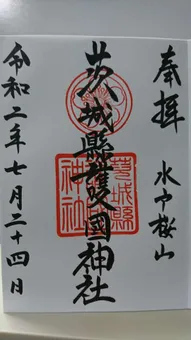 奉拝
水戸桜山
茨城縣護國神社
茨城縣
護國
神社
令和二年七月二十四日